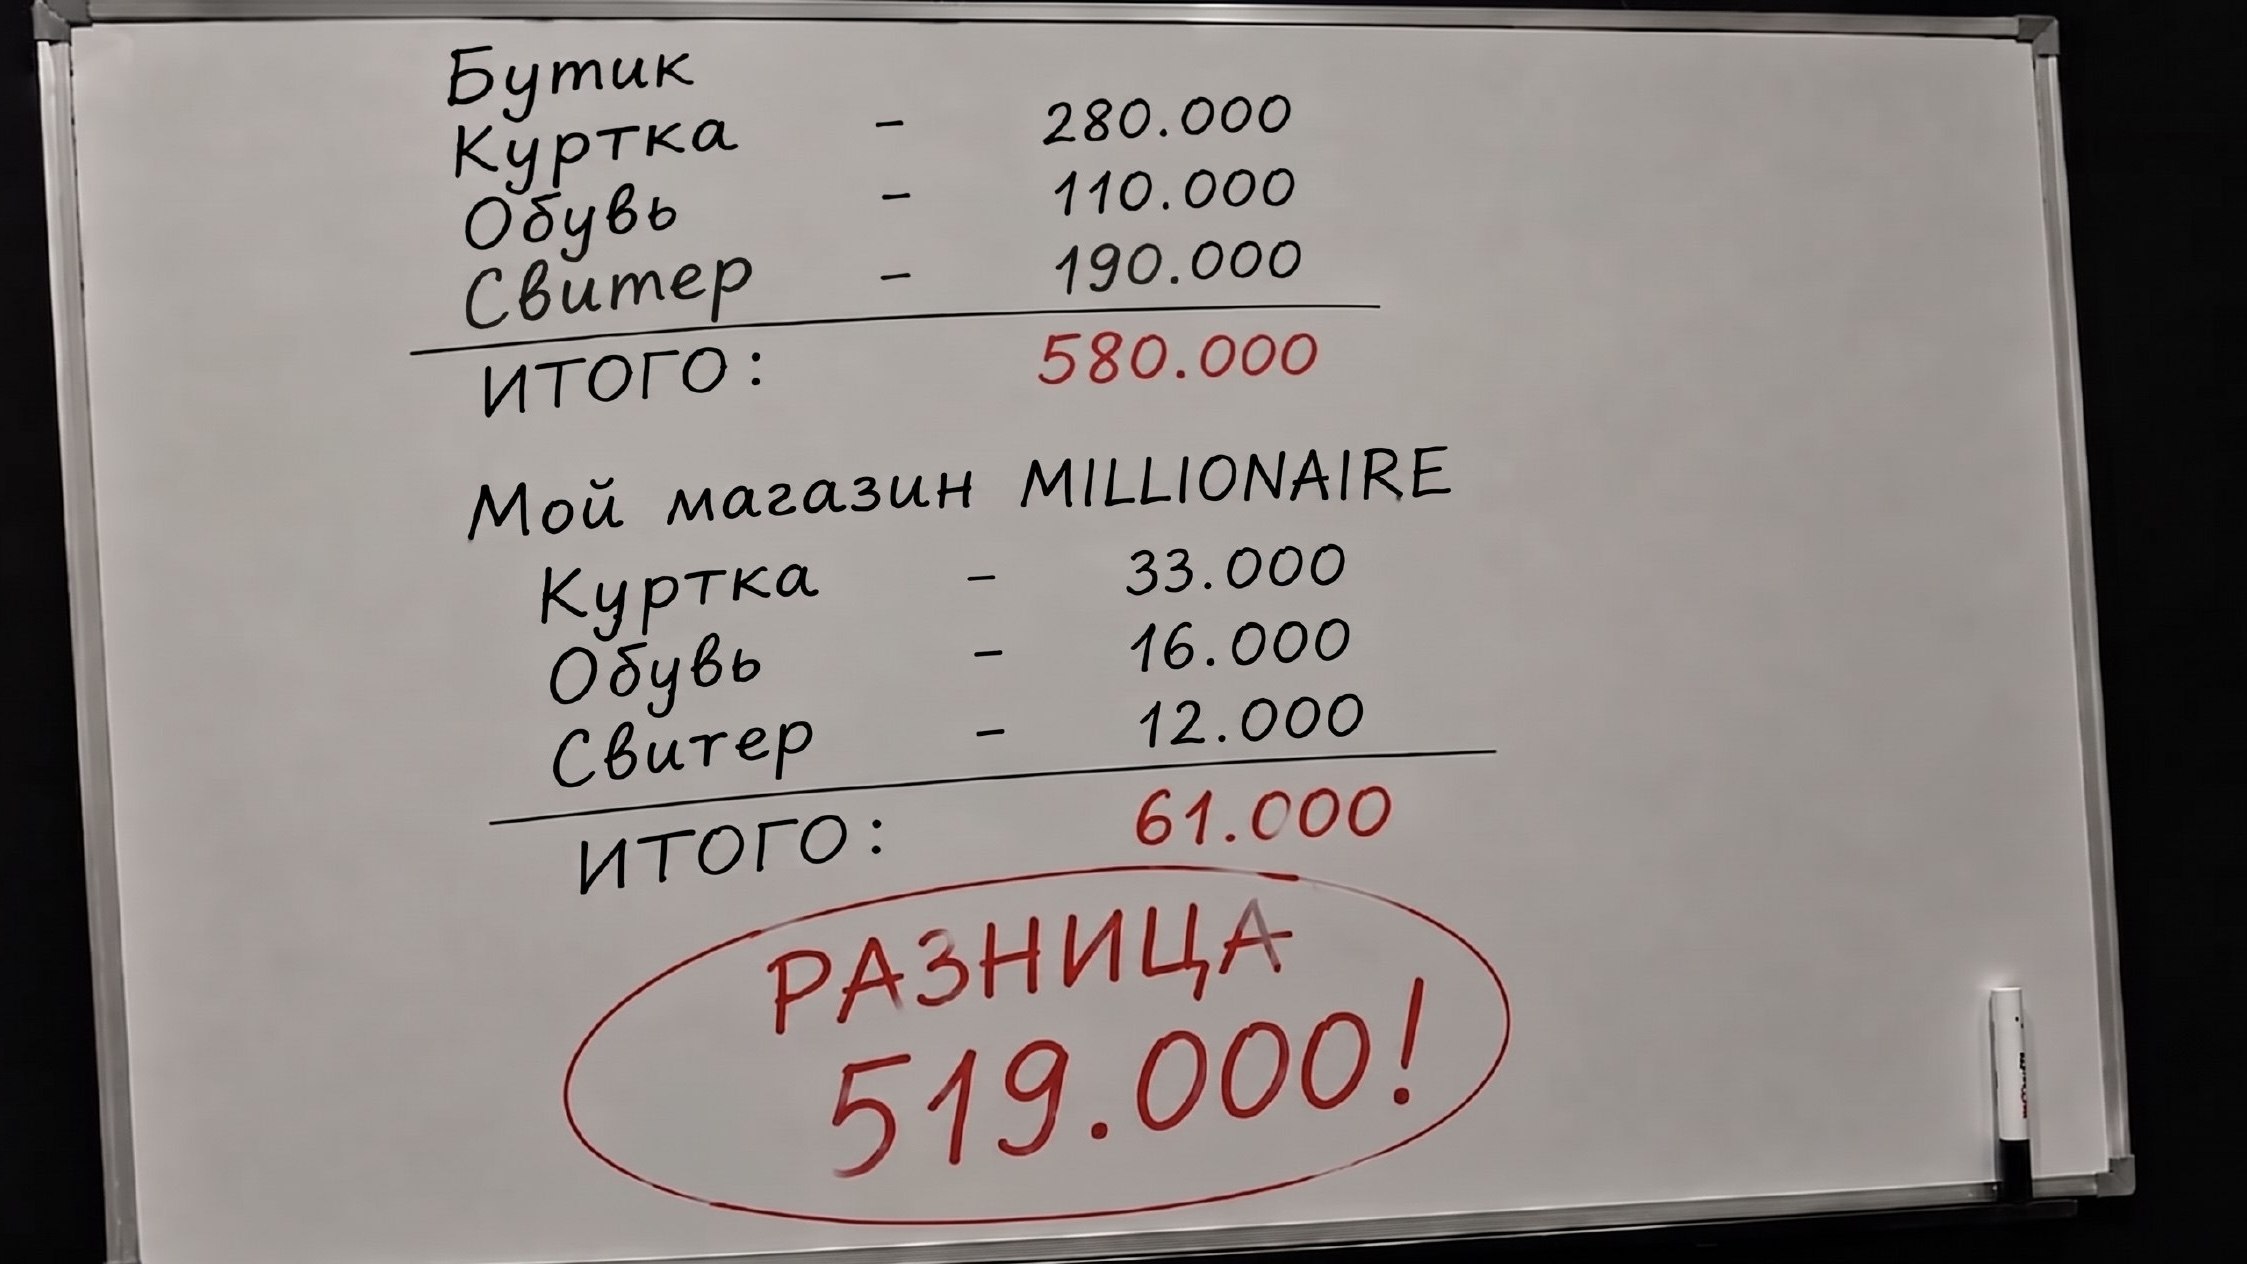 Бутик
Куртка - 280.000
Обувь - 110.000
Свитер - 190.000
ИТОГО: 580.000
Мой магазин MILLIONAIRE
Куртка - 33.000
Обувь - 16.000
Свитер - 12.000
ИТОГО: 61.000
РАЗНИЦА
519.000!